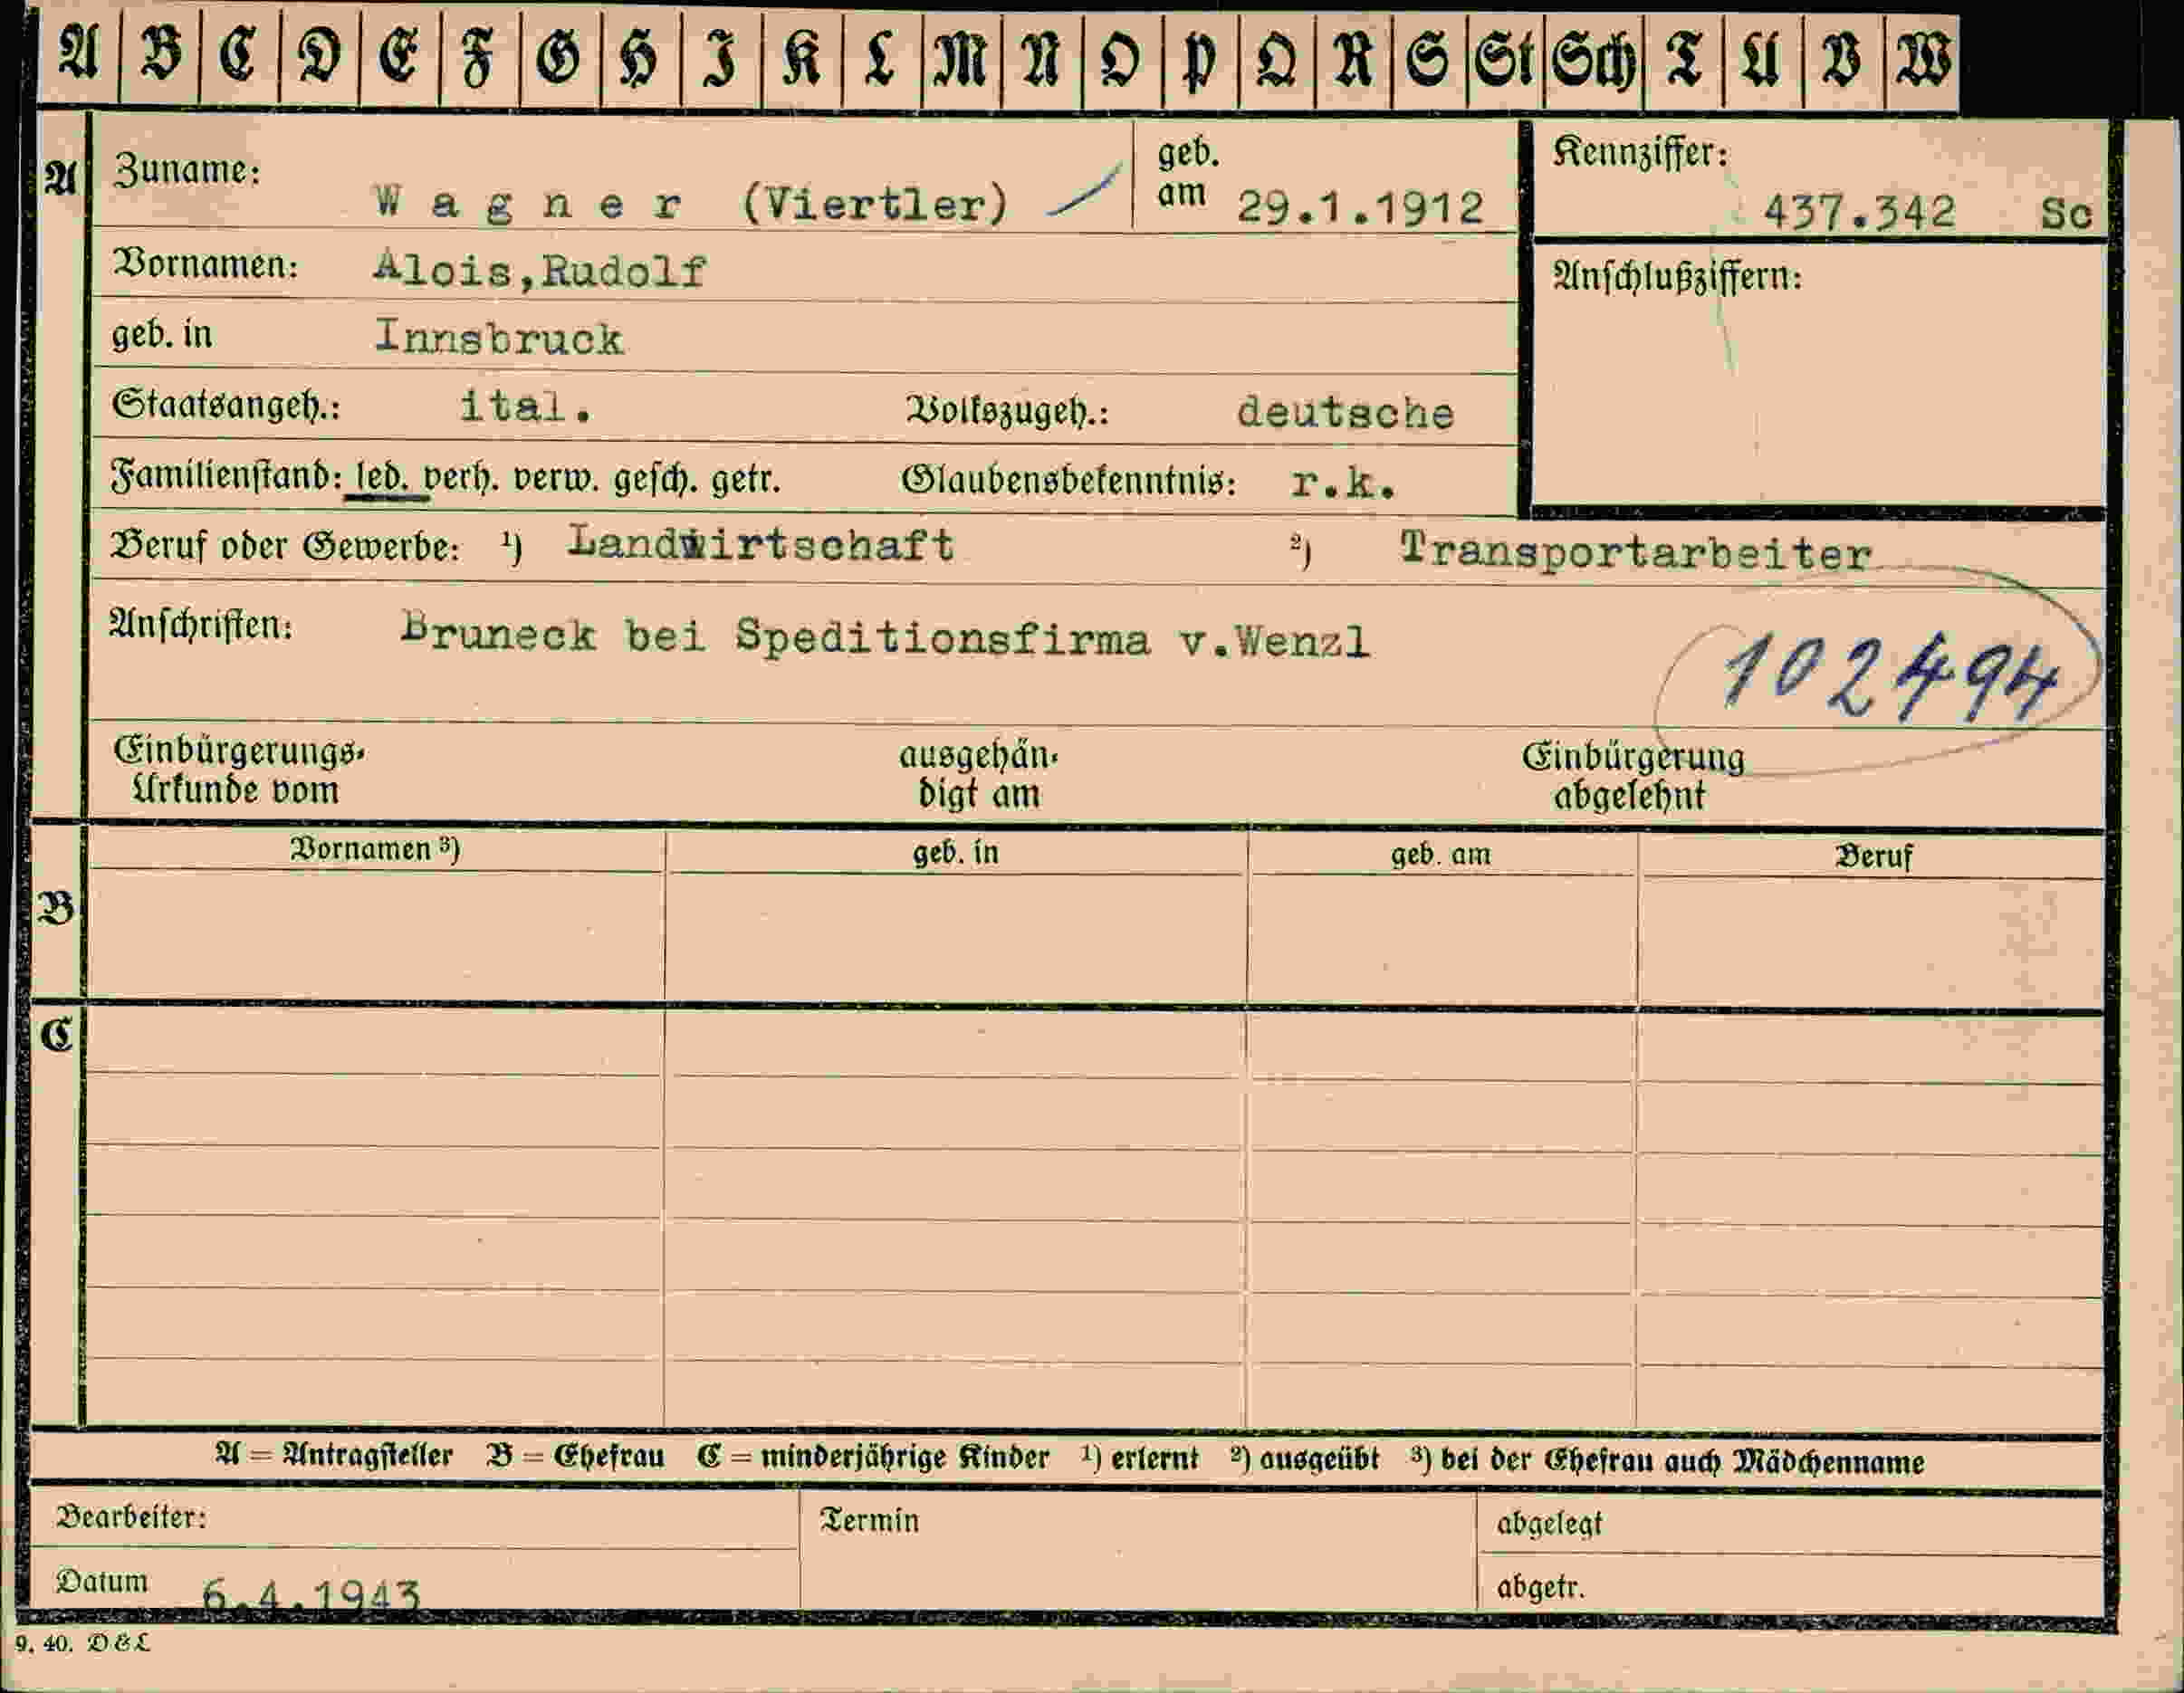 A B C D E F G H I K L M N O P Q R S St Sch T U V W
A
Zuname: Wagner (Viertler) geb. am 29.1.1912
Kennziffer: 437.342 Sc
Vornamen: Alois,Rudolf
Anschlußziffern:
geb. in Innsbruck
Staatsangeh.: ital. Volkszugeh.: deutsche
Familienstand: led. verh. verw. gesch. getr. Glaubensbekenntnis: r.k.
Beruf oder Gewerbe: ¹) Landwirtschaft ²) Transportarbeiter
Anschriften: Bruneck bei Speditionsfirma v.Wenzl
102494
Einbürgerungs-Urkunde vom ausgehändigt am Einbürgerung abgelehnt
B
Vornamen ³) geb. in geb. am Beruf
C
A = Antragsteller B = Ehefrau C = minderjährige Kinder ¹) erlernt ²) ausgeübt ³) bei der Ehefrau auch Mädchenname
Bearbeiter: Termin abgelegt
Datum 6.4.1943 abgetr.
9. 40. D&L